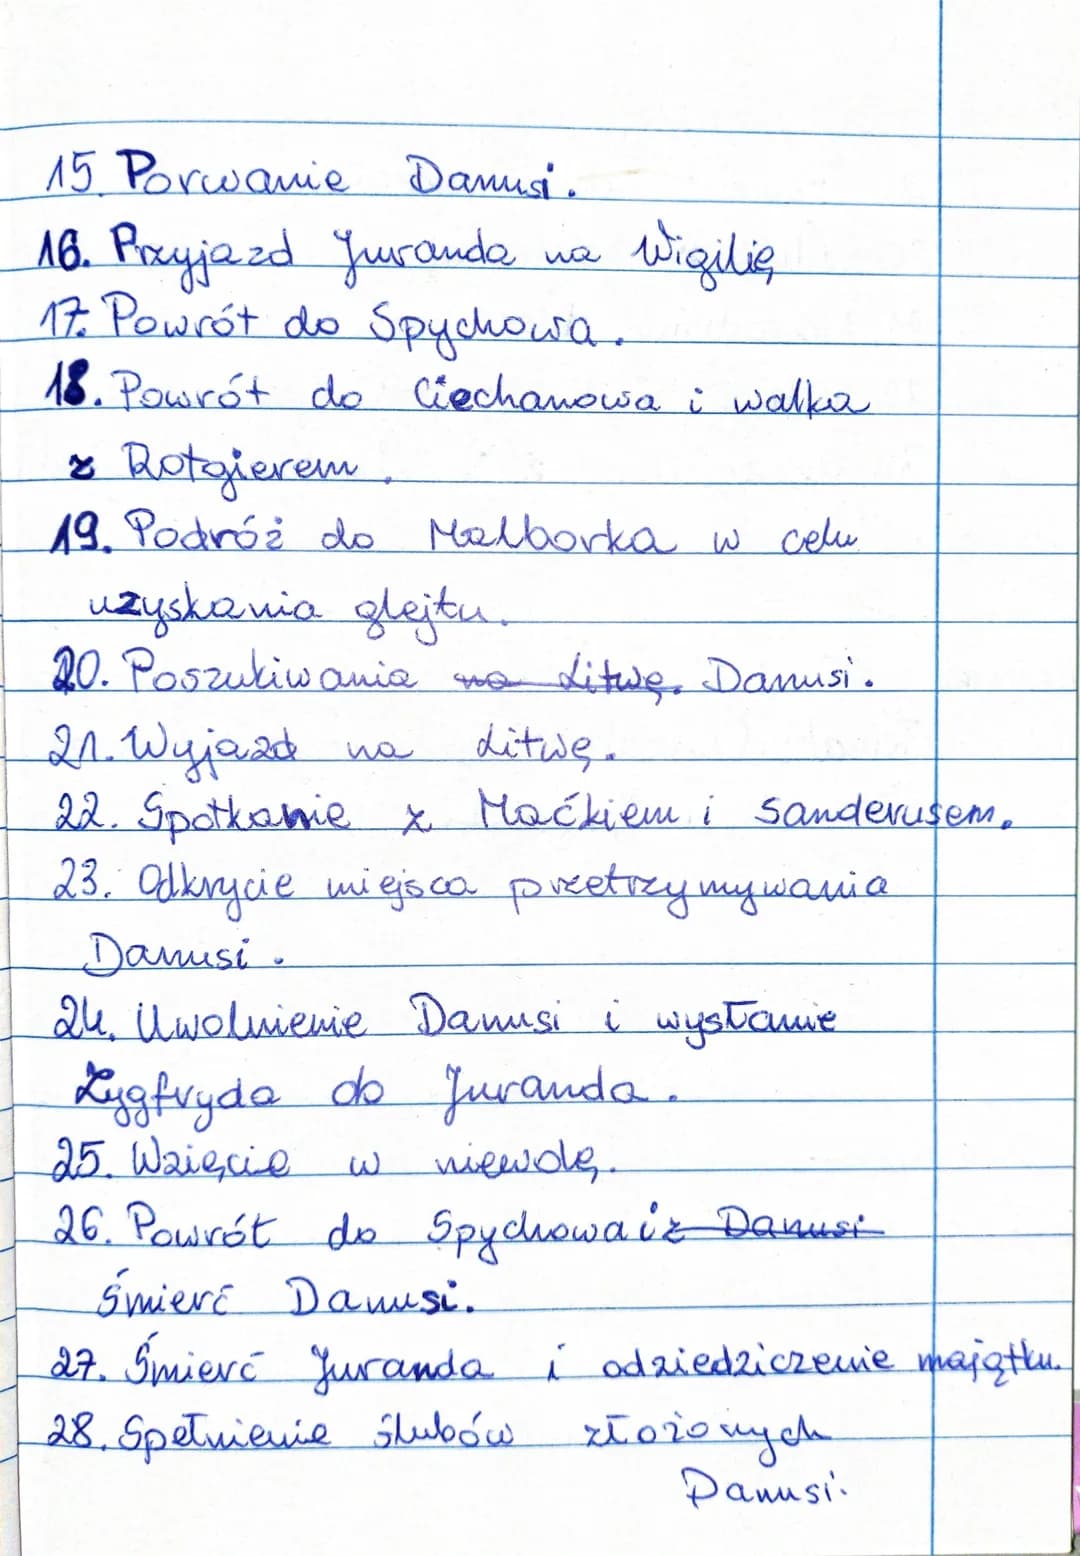 15. Porwanie Danusi.
16. Przyjazd Juranda na Wigilię
17. Powrót do Spychowa.
18. Powrót do Ciechanowa i walka
z Rotgierem.
19. Podróż do Malborka w celu
uzyskania glejtu.
20. Poszukiwania na Litwę. Danusi.
21. Wyjazd na Litwę.
22. Spotkanie z Maćkiem i Sanderusem.
23. Odkrycie miejsca przetrzymywania
Danusi.
24. Uwolnienie Danusi i wysłanie
Zygfryda do Juranda.
25. Wzięcie w niewolę.
26. Powrót do Spychowa i z Danusi
Śmierć Danusi.
27. Śmierć Juranda i odziedziczenie majątku.
28. Spełnienie ślubów złożonych
Danusi.